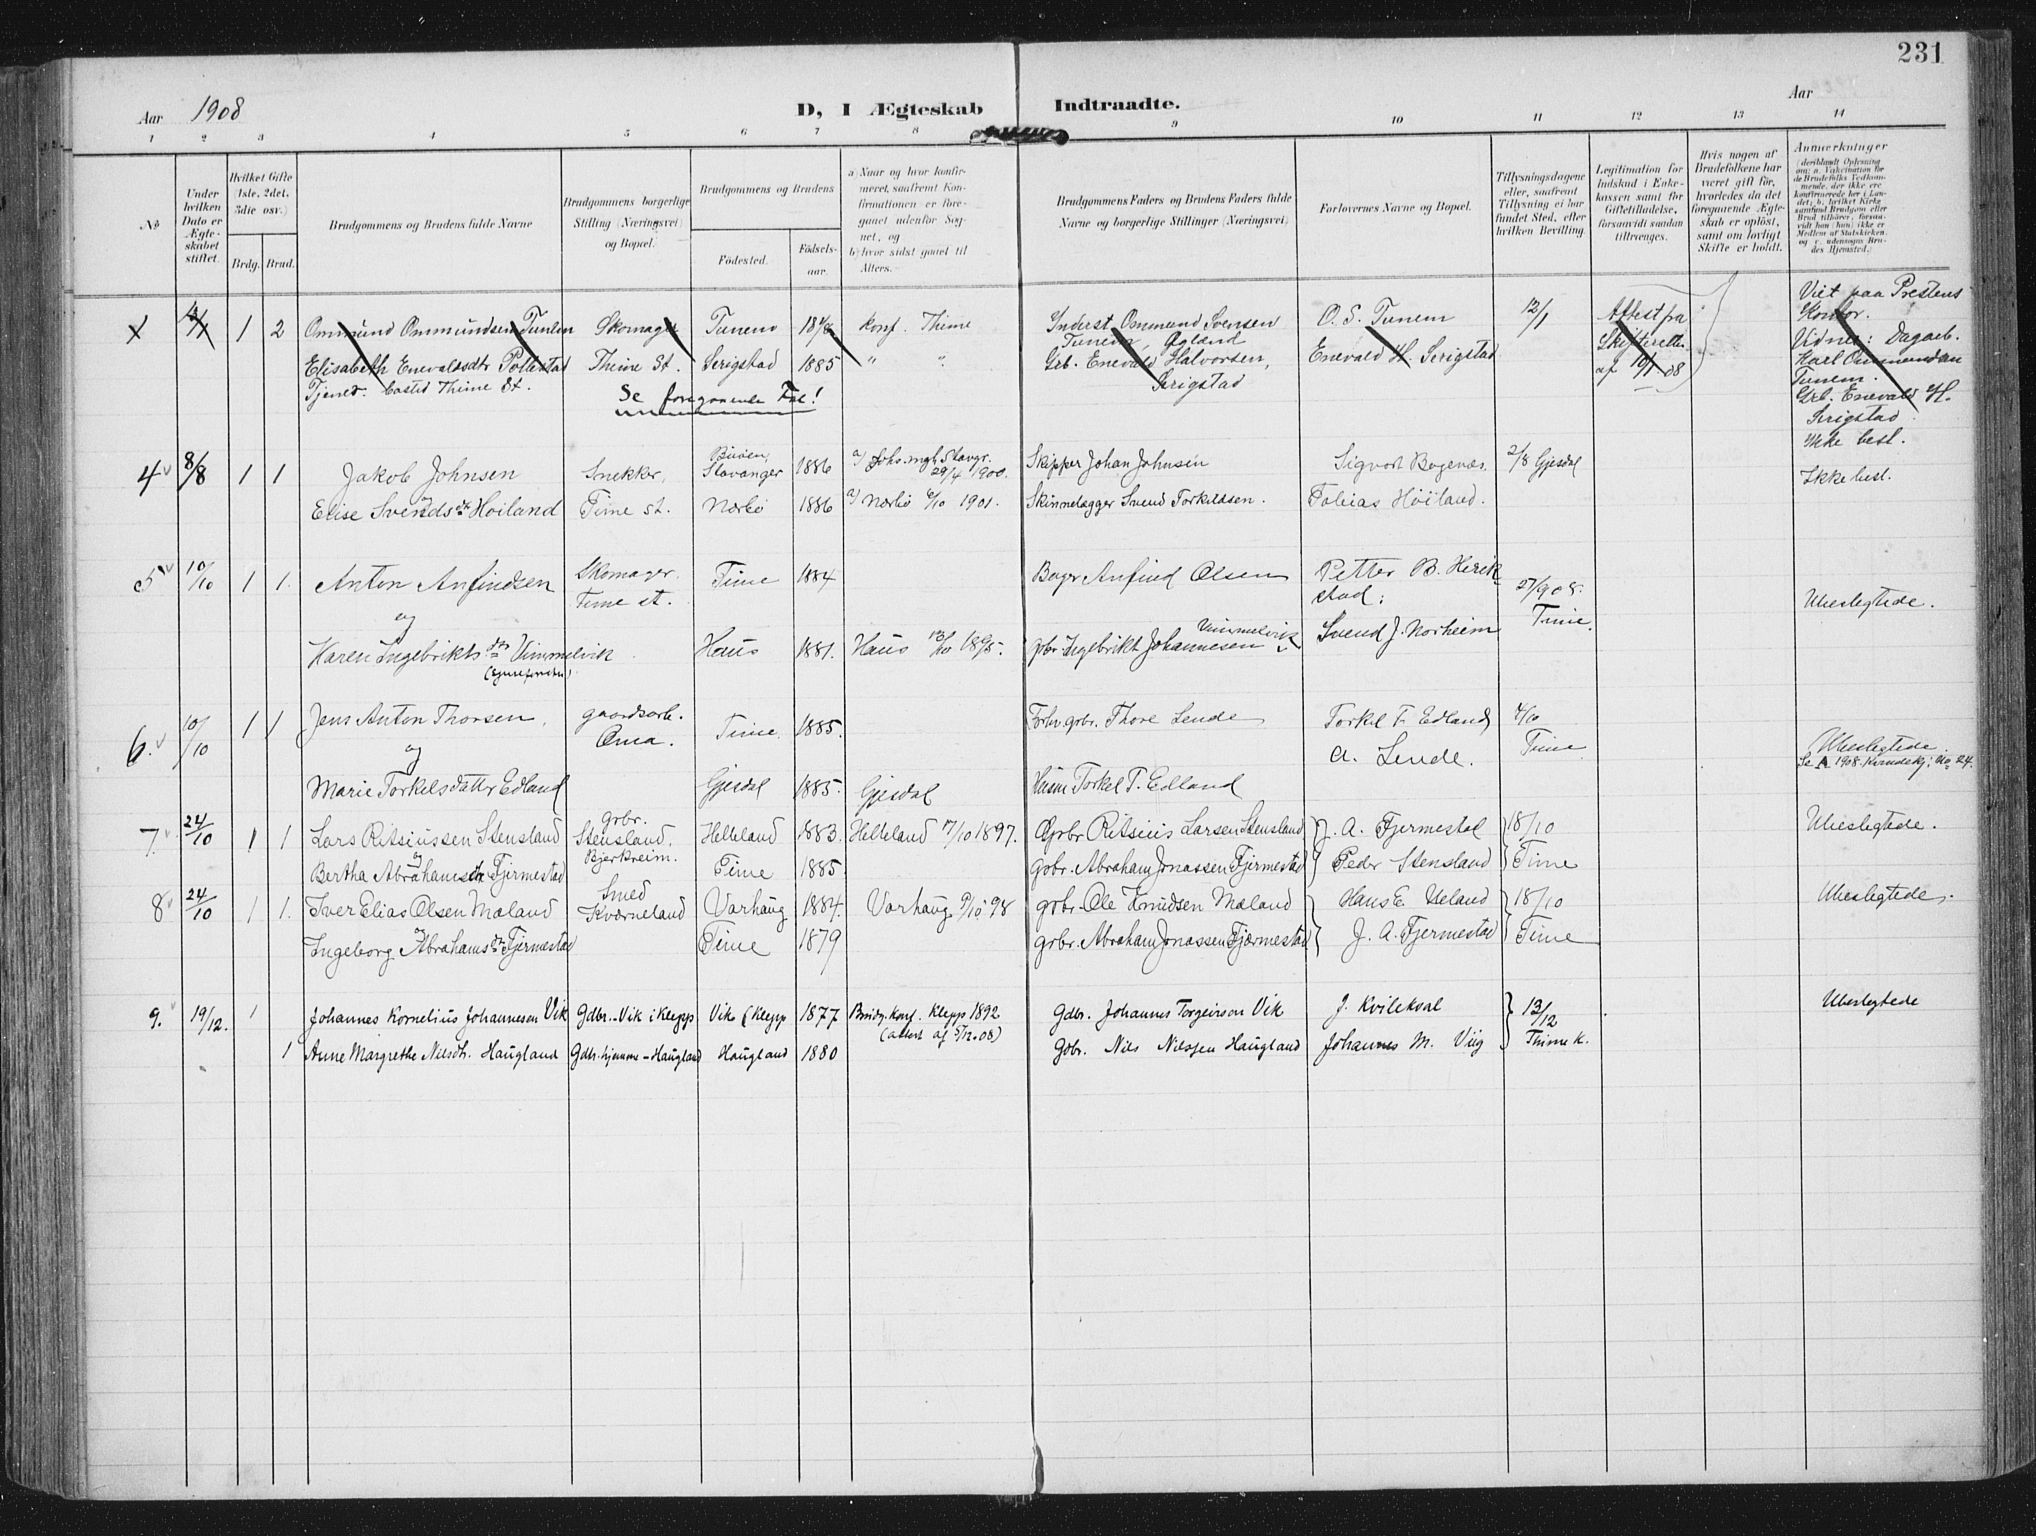 231
Aar 1908 D, I Ægteskab Indtraadte. Aar
1 2 3 4 5 6 7 8 9 10 11 12 13 14
No
Under hvilken Dato er Ægteskabet stiftet.
Hvilket Gifte (1ste, 2det, 3die osv.)
Brdg. Brud.
Brudgommens og Brudens fulde Navne
Brudgommens borgerlige Stilling (Næringsvei) og Bopæl.
Brudgommens og Brudens
Fødested. Fødselsaar.
a) Naar og hvor konfirmeret, saafremt Konfirmationen er foregaaet udenfor Sognet, og
b) hvor sidst gaaet til Alters.
Brudgommens Faders og Brudens Faders fulde Navne og borgerlige Stillinger (Næringsvei)
Forlovernes Navne og Bopæl.
Tillysningsdagene eller, saafremt Tillysning ei har fundet Sted, efter hvilken Bevilling.
Legitimation for Indskud i Enkekassen samt for Giftetilladelse, forsaavidt saadan tiltrænges.
Hvis nogen af Brudefolkene har været gift før, hvorledes da det foregaaende Ægteskab er opløst, samt om lovligt Skifte er holdt.
Anmerkninger
1 2 Ommund Ommundsen Tunem Skomager Tunem konf. Thime Inderst Ommund Svensen O. S. Tunem 12/1 Attest fra Viet paa Prestens
Tunem, Kontor.
Elisabeth Enevaldsdtr Pollestad Thime St. Serigstad 1885 " " Grb. Enevald Halvorsen, Enevald H. Serigstad Skifterett. Vidner: Dagarb.
Serigstad af 10/1 08 Karl Ommundsen
Tjenes. bosted Thime St. Se foregaaende Fol! Tunem.
Grb. Enevald H.
Serigstad
Ikke besl.
4 8/8 1 1 Jakob Johnsen Snekker, Buøen, Stavanger 1886 a) Johs. mgh. Stavgr. 29/4 1900. Skipper Johan Johnsen Sigvart Bogenæs. 2/8 Gjesdal Ikke besl.
og
Elise Svendsdtr Høiland Time st. Nærbø 1886 a) Nærbø 6/10 1901. Skinnelægger Svend Torkildsen. Tobias Höiland.
5 10/10 1 1. Anton Anfindsen Skomager. Time st. Time 1884 Bager Anfind Olsen Petter B. Herikstad: 27/9 08. Time. Ubeslegtede.
og
Karen Ingebrikts dtr Vimmelvik Haus 1881. Haus 13/10 1895. gbr. Ingebrikt Johannesen Vimmelvik Svend J. Norheim
6. 10/10 1 1 Jens Anton Thorsen, gaardsarb. Oma. Time. 1885. Forhv. grbr. Thore Lende Torkel T. Edland 4/10 Time Ubeslegtede.
og A. Lende. Se A 1908. Kvindekj. No 24.
Marie Torkelsdatter Edland Gjesdal 1885. Gjesdal Husm Torkel T. Edland
7. 24/10 1 1 Lars Ritsiussen Stensland grbr. Stensland. Bjerkreim. Helleland 1883. Helleland 17/10 1897. Grbr. Ritsius Larsen Stensland J. A. Fjermestad 18/10 Ubeslegtede.
og
Bertha Abrahamsdtr Fjermestad Time 1885. gbr. Abraham Jonassen Fjermestad Peder Stensland Time
8 24/10 1 1. Iver Elias Olsen Mæland Smed Kværneland Varhaug 1884. Varhaug 9/10 98 grbr. Ole Knudsen Mæland Hans E. Ueland 18/10 Ubeslegtede.
og
Ingeborg Abrahams dtr Fjermestad Time 1879 grbr. Abraham Jonassen Fjærmestad J. A. Fjermestad Time
9. 19/12. 1 Johannes Kornelius Johannesen Vik Gdbr. - Vik i Klepp Vik (Klepp 1877 Brudg. konf. Klepp 1892 Gdbr. Johannes Torgeirson Vik J. Kvileksal 13/12 Ubeslegtede
(attest af 5/12.08)
1 Anne Margrethe Nilsdtr. Haugland Gdbr. hjemme - Haugland Haugland 1880 Gdbr. Nils Nilssen Haugland Johannes M. Viig Thime K.